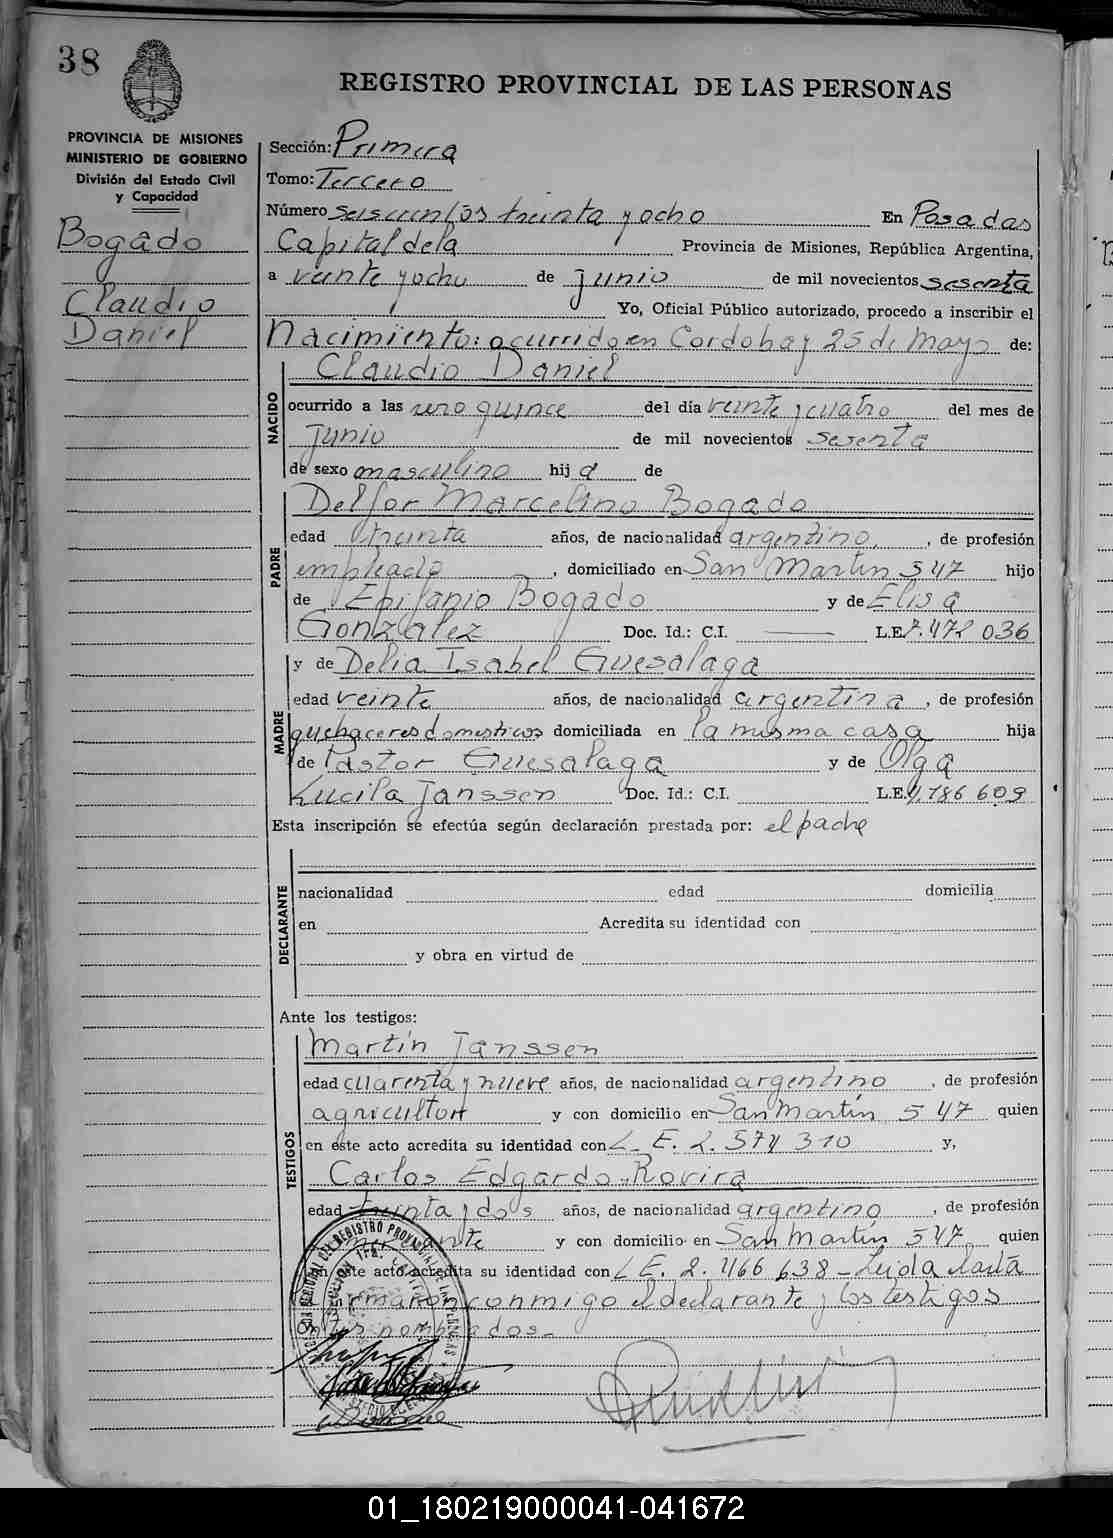 38
REGISTRO PROVINCIAL DE LAS PERSONAS
PROVINCIA DE MISIONES
MINISTERIO DE GOBIERNO
División del Estado Civil
y Capacidad
Bogado
Claudio
Daniel
Sección: Primera
Tomo: Tercero
Número seiscientos treinta y ocho En Posadas
Capital de la Provincia de Misiones, República Argentina,
a veinte y ocho de junio de mil novecientos sesenta
Yo, Oficial Público autorizado, procedo a inscribir el
Nacimiento: ocurrido en Cordoba y 25 de Mayo de:
NACIDO
Claudio Daniel
ocurrido a las cero quince del día veinte y cuatro del mes de
junio de mil novecientos sesenta
de sexo masculino hijo de
PADRE
Delfor Marcelino Bogado
edad treinta años, de nacionalidad argentino, de profesión
empleado, domiciliado en San Martin 547 hijo
de Epifanio Bogado y de Elisa
Gonzalez Doc. Id.: C.I. —— L.E. 7.472 036
MADRE
y de Delia Isabel Guesalaga
edad veinte años, de nacionalidad argentina, de profesión
quehaceres domesticos domiciliada en la misma casa hija
de Pastor Guesalaga y de Olga
Lucila Janssen Doc. Id.: C.I. L.E. 4.786 609
Esta inscripción se efectúa según declaración prestada por: el padre
DECLARANTE
nacionalidad edad domicilia
en Acredita su identidad con
y obra en virtud de
Ante los testigos:
TESTIGOS
Martín Janssen
edad cuarenta y nueve años, de nacionalidad argentino, de profesión
agricultor y con domicilio en San Martín 547 quien
en este acto acredita su identidad con L. E. 2.574 310 y,
Carlos Edgardo Rovira
edad treinta y dos años, de nacionalidad argentino, de profesión
y con domicilio en San Martin 547 quien
en este acto acredita su identidad con L E. 2.466 638 - Leida el acta
firmaron conmigo el declarante y los testigos
nombrados.-
01_180219000041-041672